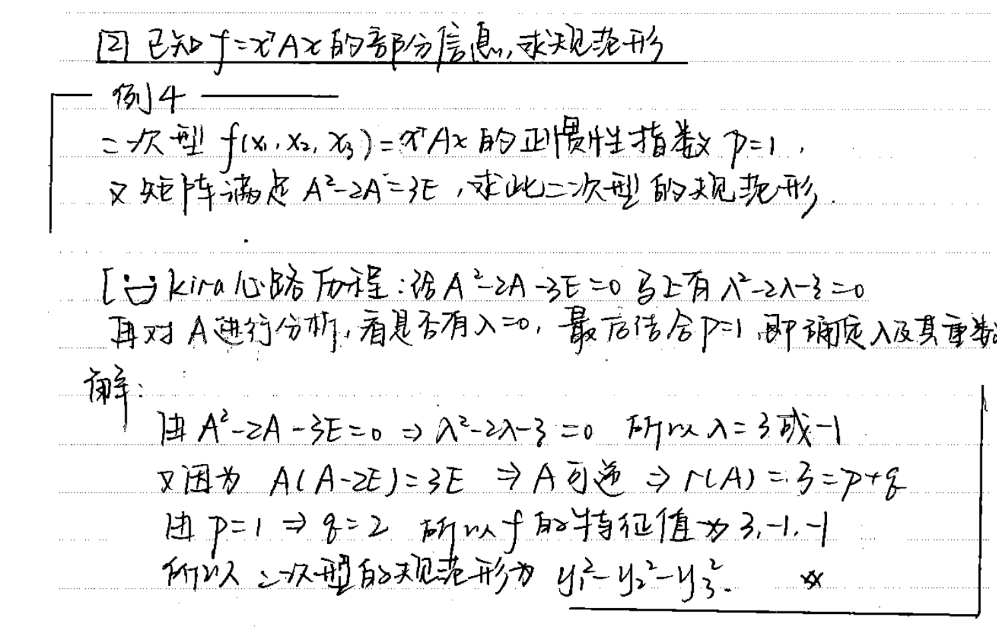 [2] 已知f=xᵀAx的部分信息,求规范形
例4
二次型 f(x₁,x₂,x₃)=xᵀAx 的正惯性指数 p=1,
又矩阵满足 A²-2A=3E,求此二次型的规范形.
[kira心路历程:给A²-2A-3E=0 马上有 λ²-2λ-3=0
再对A进行分析,看是否有λ=0, 最后结合p=1,即确定λ及其重数
解:
由 A²-2A-3E=0 ⇒ λ²-2λ-3=0 所以 λ=3或-1
又因为 A(A-2E)=3E ⇒ A可逆 ⇒ r(A)=3=p+q
由 p=1 ⇒ q=2 所以f的特征值为 3,-1,-1
所以 二次型的规范形为 y₁²-y₂²-y₃².